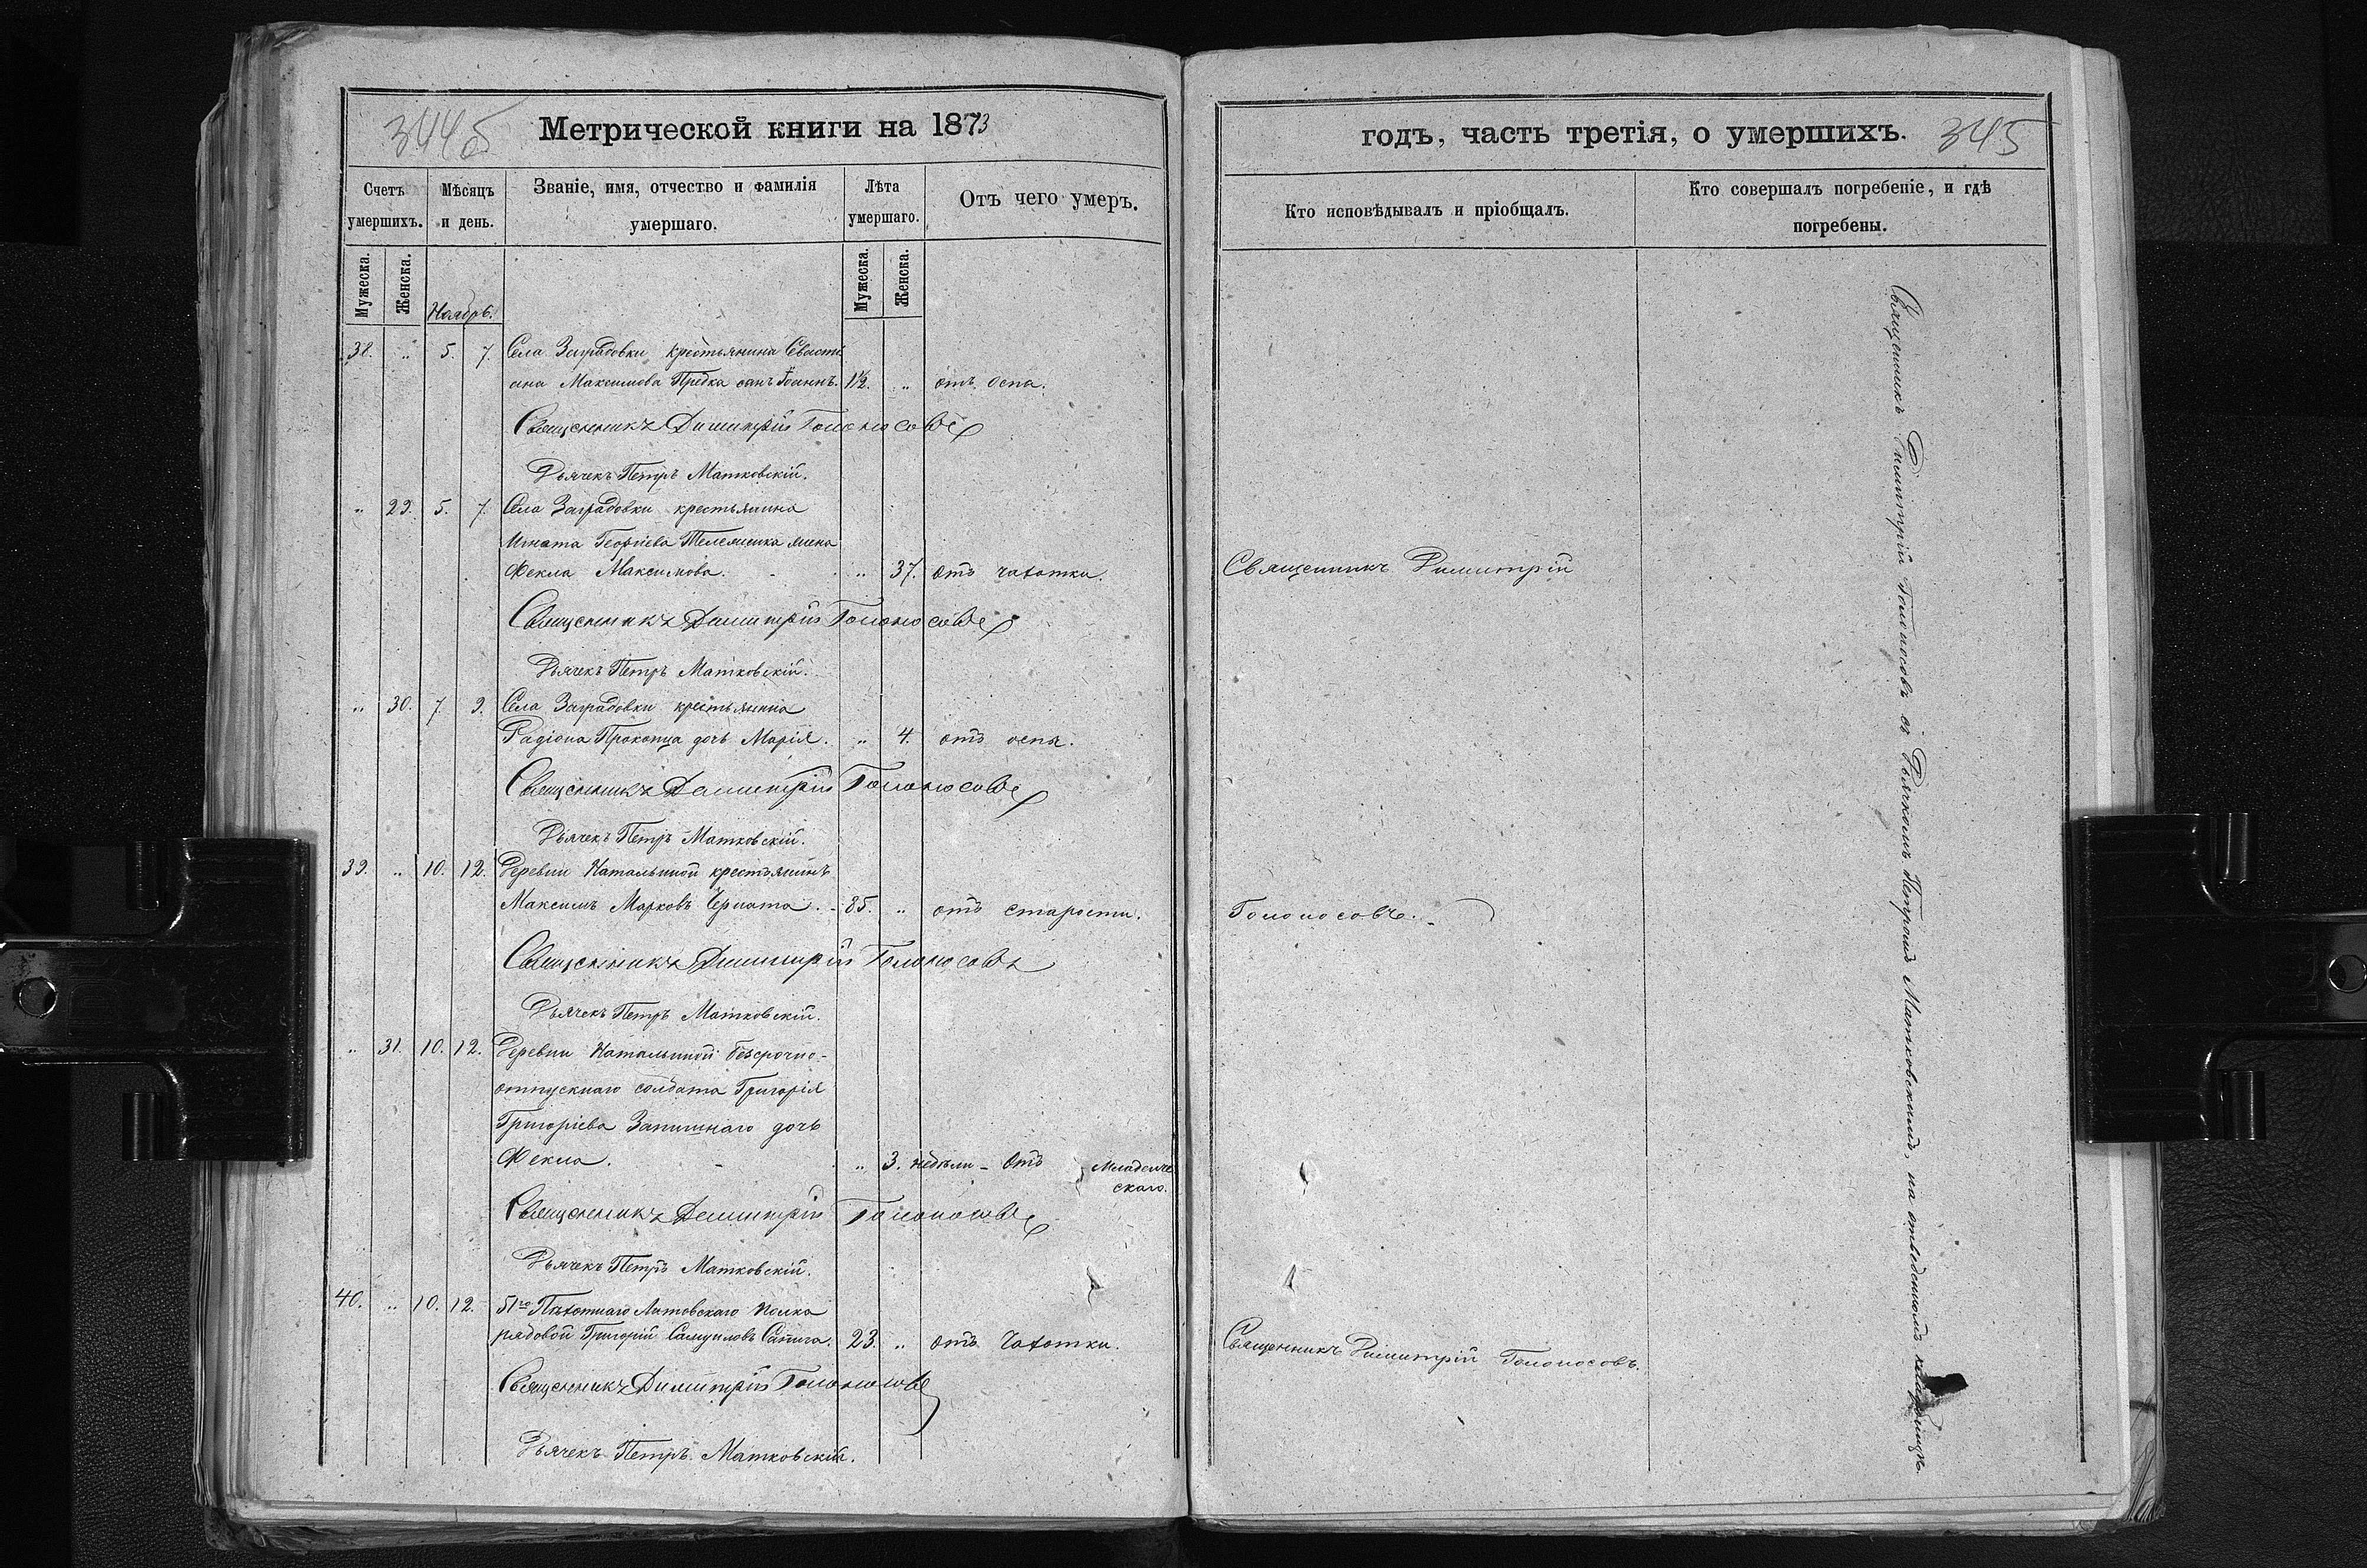 344об
Метрической книги на 1873
Счетъ умершихъ.
Мѣсяцъ и день.
Званіе, имя, отчество и фамилія умершаго.
Лѣта умершаго.
Отъ чего умеръ.
Мужеска.
Женска.
Ноябрь.
Мужеска.
Женска.
38. „ 5. 7. Села Заградовки крестьянина Севасть
яна Максимова сынъ Іоаннъ. 1½. „ отъ оспы.
Священникъ Димитрій Голоносовъ
Дьячекъ Петръ Матковскій.
„ 29. 5. 7. Села Заградовки крестьянина
Игната Георгіева жена
Фекла Максимова. „ 37. отъ чахотки.
Священникъ Димитрій Голоносовъ
Дьячекъ Петръ Матковскій.
„ 30. 7. 9. Села Заградовки крестьянина
Радіона Прокопца дочь Марія. „ 4. отъ оспы.
Священникъ Димитрій Голоносовъ
Дьячекъ Петръ Матковскій.
39. „ 10. 12. Деревни Натальиной крестьянинъ
Максимъ Марковъ 85. „ отъ старости.
Священникъ Димитрій Голоносовъ
Дьячекъ Петръ Матковскій.
„ 31. 10. 12. Деревни Натальиной безсрочно-
отпускнаго солдата Григорія
Григоріева дочь
Фекла. „ 3. недѣли – отъ младенче
скаго.
Священникъ Димитрій Голоносовъ
Дьячекъ Петръ Матковскій.
40. „ 10. 12. 51го Пѣхотнаго Литовскаго полка
рядовой Григорій Самуиловъ Сапига. 23. „ отъ чахотки.
Священникъ Димитрій Голоносовъ
Дьячекъ Петръ Матковскій.
годъ, часть третія, о умершихъ.
345
Кто исповѣдывалъ и пріобщалъ.
Кто совершалъ погребеніе, и гдѣ
погребены.
Священникъ Димитрій
Голоносовъ.
Священникъ Димитрій Голоносовъ.
Священникъ Димитрій Голоносовъ съ Дьячкомъ Петромъ Матковскимъ, на отведенномъ кладбищѣ.